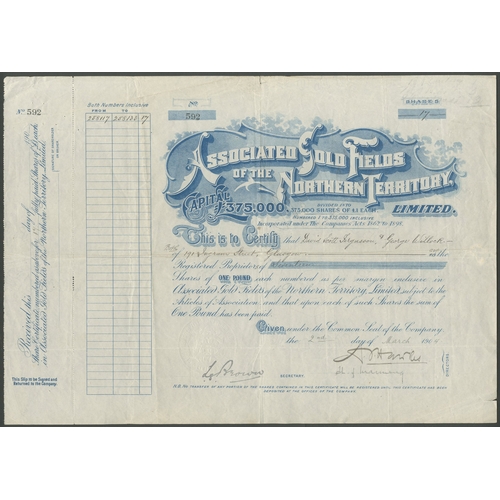 No 592
Both Numbers Inclusive
FROM TO
No
592
SHARES
17
ASSOCIATED GOLD FIELDS
OF THE
NORTHERN TERRITORY,
LIMITED.
CAPITAL £375,000.
DIVIDED INTO
375,000 SHARES OF £1 EACH
NUMBERED 1 TO 375,000 INCLUSIVE
Incorporated under The Companies Acts 1862 to 1898.
This is to Certify that David Ferguson, & George
of Ingram Street, Glasgow is the
Registered Proprietor of Seventeen
Shares of ONE POUND each numbered as per margin inclusive in
Associated Gold Fields of the Northern Territory, Limited subject to the
Articles of Association, and that upon each of such Shares the sum of
One Pound has been paid.
Given under the Common Seal of the Company
the 2nd day of March
DIRECTORS
SECRETARY.
N.B. NO TRANSFER OF ANY PORTION OF THE SHARES CONTAINED IN THIS CERTIFICATE WILL BE REGISTERED UNTIL THIS CERTIFICATE HAS BEEN
DEPOSITED AT THE OFFICES OF THE COMPANY.
Received this day of
Share Certificate numbered
in Associated Gold Fields of the Northern Territory, Limited.
This Slip to be Signed and
Returned to the Company.